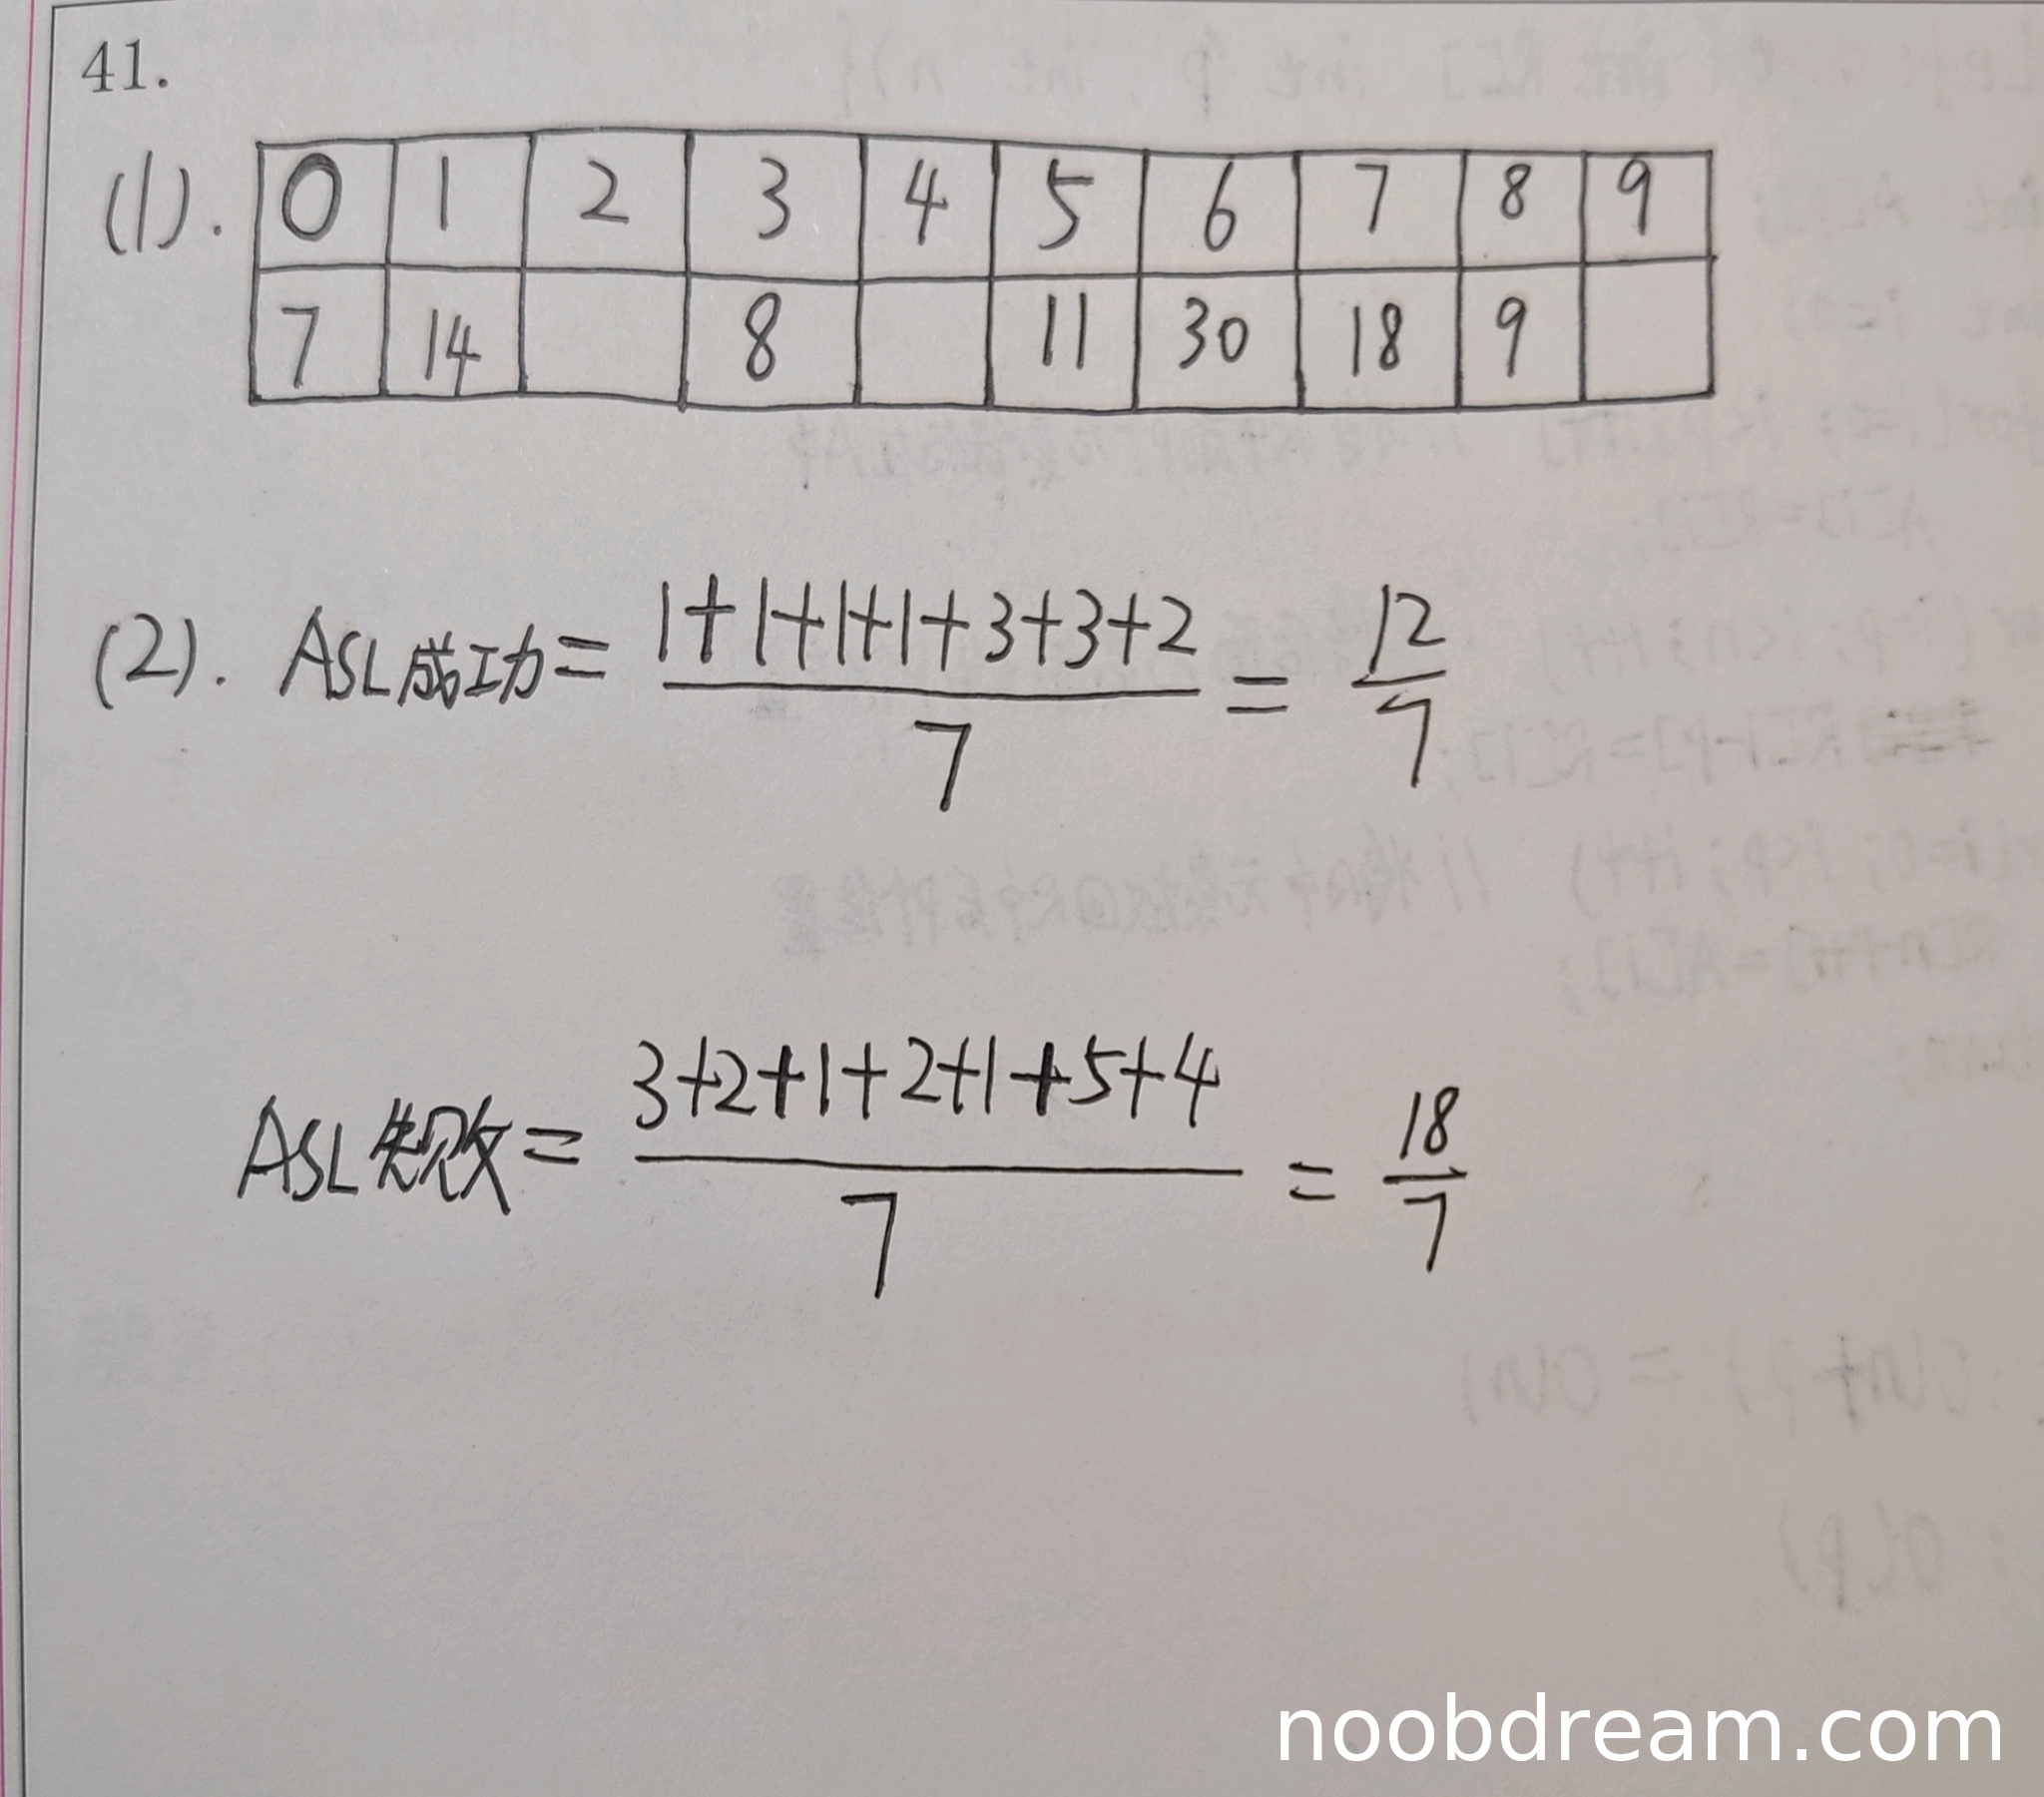 41.
(1). 0 1 2 3 4 5 6 7 8 9
7 14 8 11 30 18 9
(2). ASL成功 = 1+1+1+1+3+3+2 / 7 = 12/7
ASL失败 = 3+2+1+2+1+5+4 / 7 = 18/7
noobdream.com